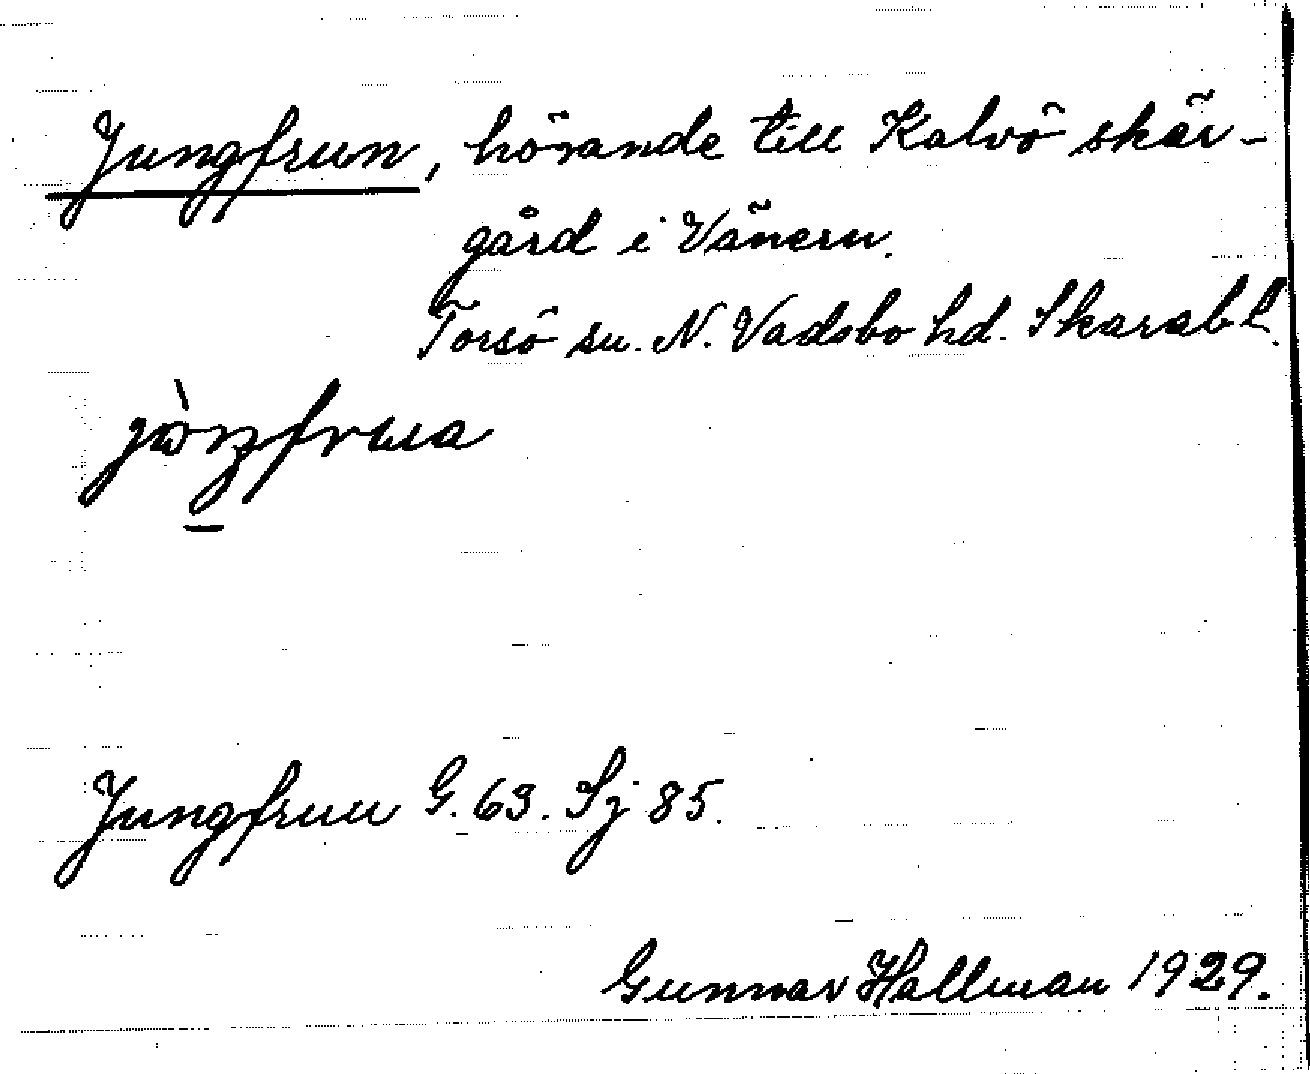 Jungfrun, hörande till Kalvö skär-
gård i Vänern.
Torsö sn. N. Vadsbo hd. Skarab. l.
Jungfrun G. 63. Sj 85.
Gunnar Hallman 1929.